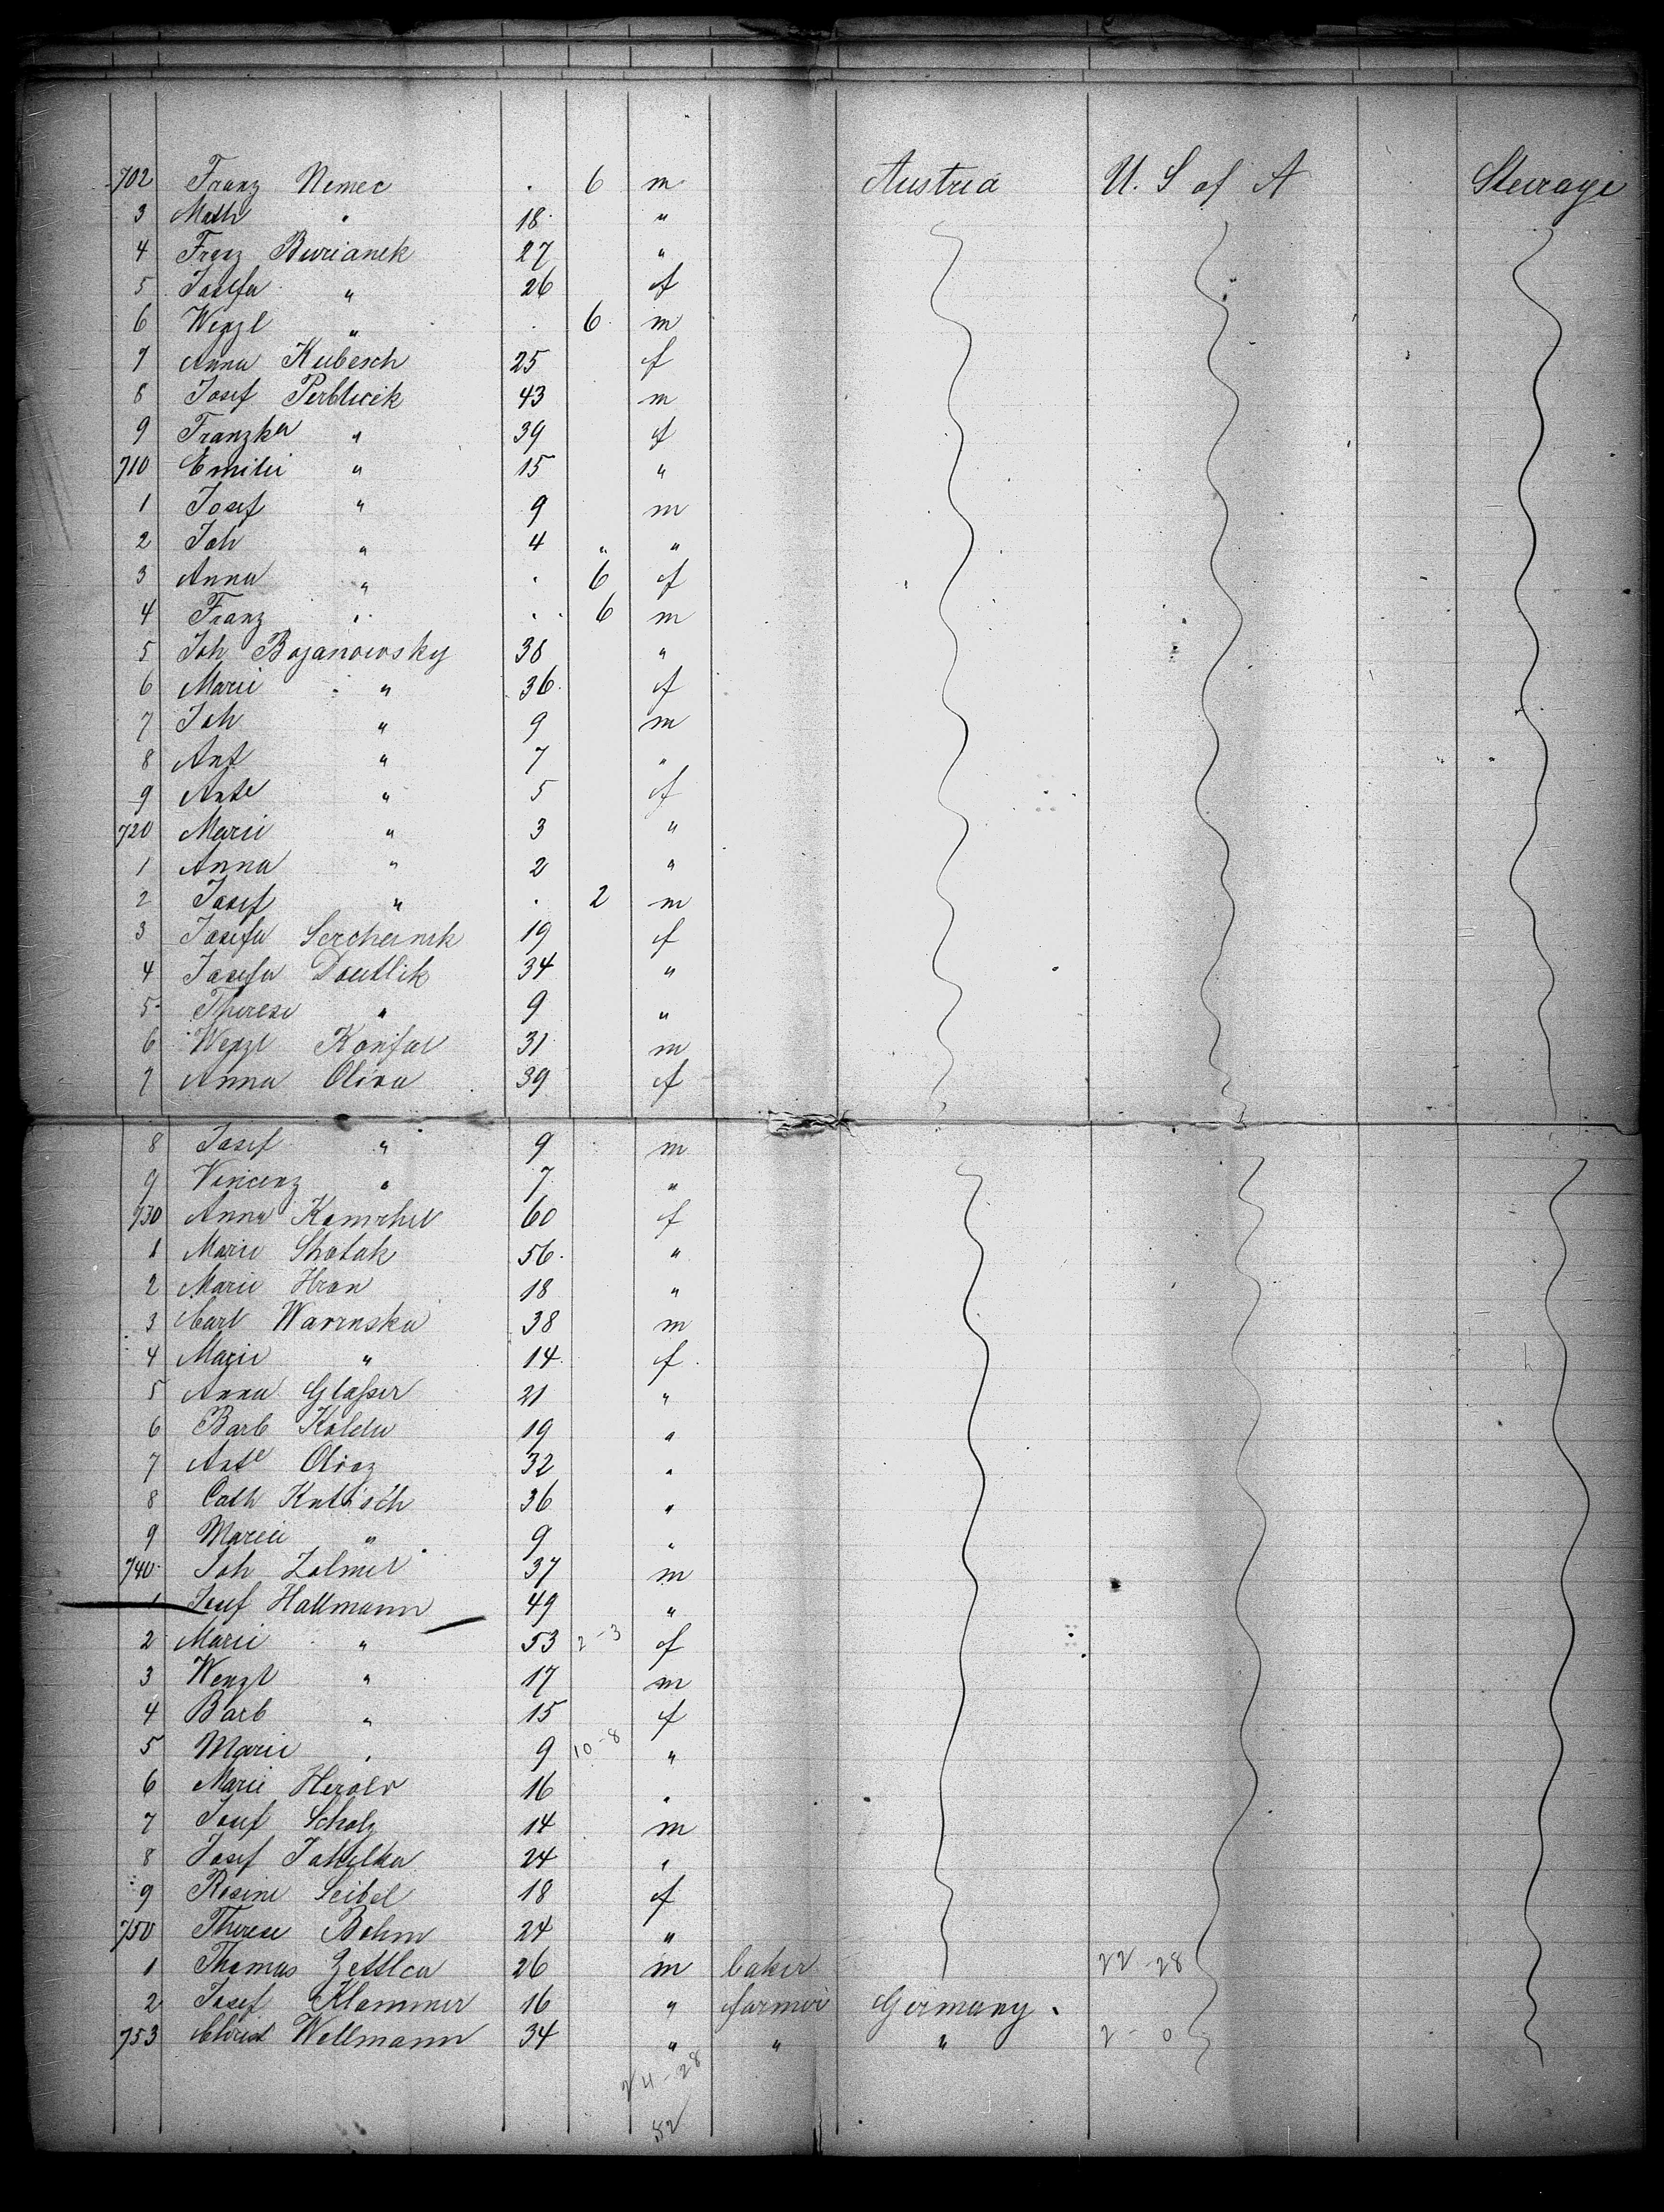 702 Franz Nemec . 6 m Austria U. S of A Steerage
3 Math " 18 "
4 Franz Burianek 27 "
5 Josefa " 26 f
6 Wenzl " . 6 m
7 Anna Kubesch 25 f
8 Josef 43 m
9 Franzka " 39 f
710 Emilie " 15 "
1 Josef " 9 m
2 Joh " 4 " "
3 Anna " . 6 f
4 Franz " . 6 m
5 Joh Bojanowsky 38 "
6 Marie " 36 f
7 Joh " 9 m
8 Ant " 7 "
9 Ante " 5 f
720 Marie " 3 "
1 Anna " 2 "
2 Josef " . 2 m
3 Josefa 19 f
4 Josefa Doutlik 34 "
5 Therese " 9 "
6 Wenzl Konfal 31 m
7 Anna Oliva 39 f
8 Josef " 9 m
9 Vincenz " 7 "
730 Anna 60 f
1 Marie Shotak 56 "
2 Marie Hron 18 "
3 Carl Warenska 38 m
4 Marie " 14 f
5 Anna Glaßer 21 "
6 Barb Kolda 19 "
7 Ante 32 "
8 Cath 36 "
9 Marie " 9 "
740 Joh Zolmel 37 m
1 Josef Hallmann 49 "
2 Marie " 53 2-3 f
3 Wenzl " 17 m
4 Barb " 15 f
5 Marie " 9 10-8 "
6 Marie Herold 16 "
7 Josef Scholz 14 m
8 Josef 24 "
9 Rosine Seibel 18 f
750 Therese Bohm 24 "
1 Thomas 26 m baker 22-28
2 Josef Klammer 16 " farmer Germany
753 Christ Wellmann 34 " " " 2-0
24-28
52